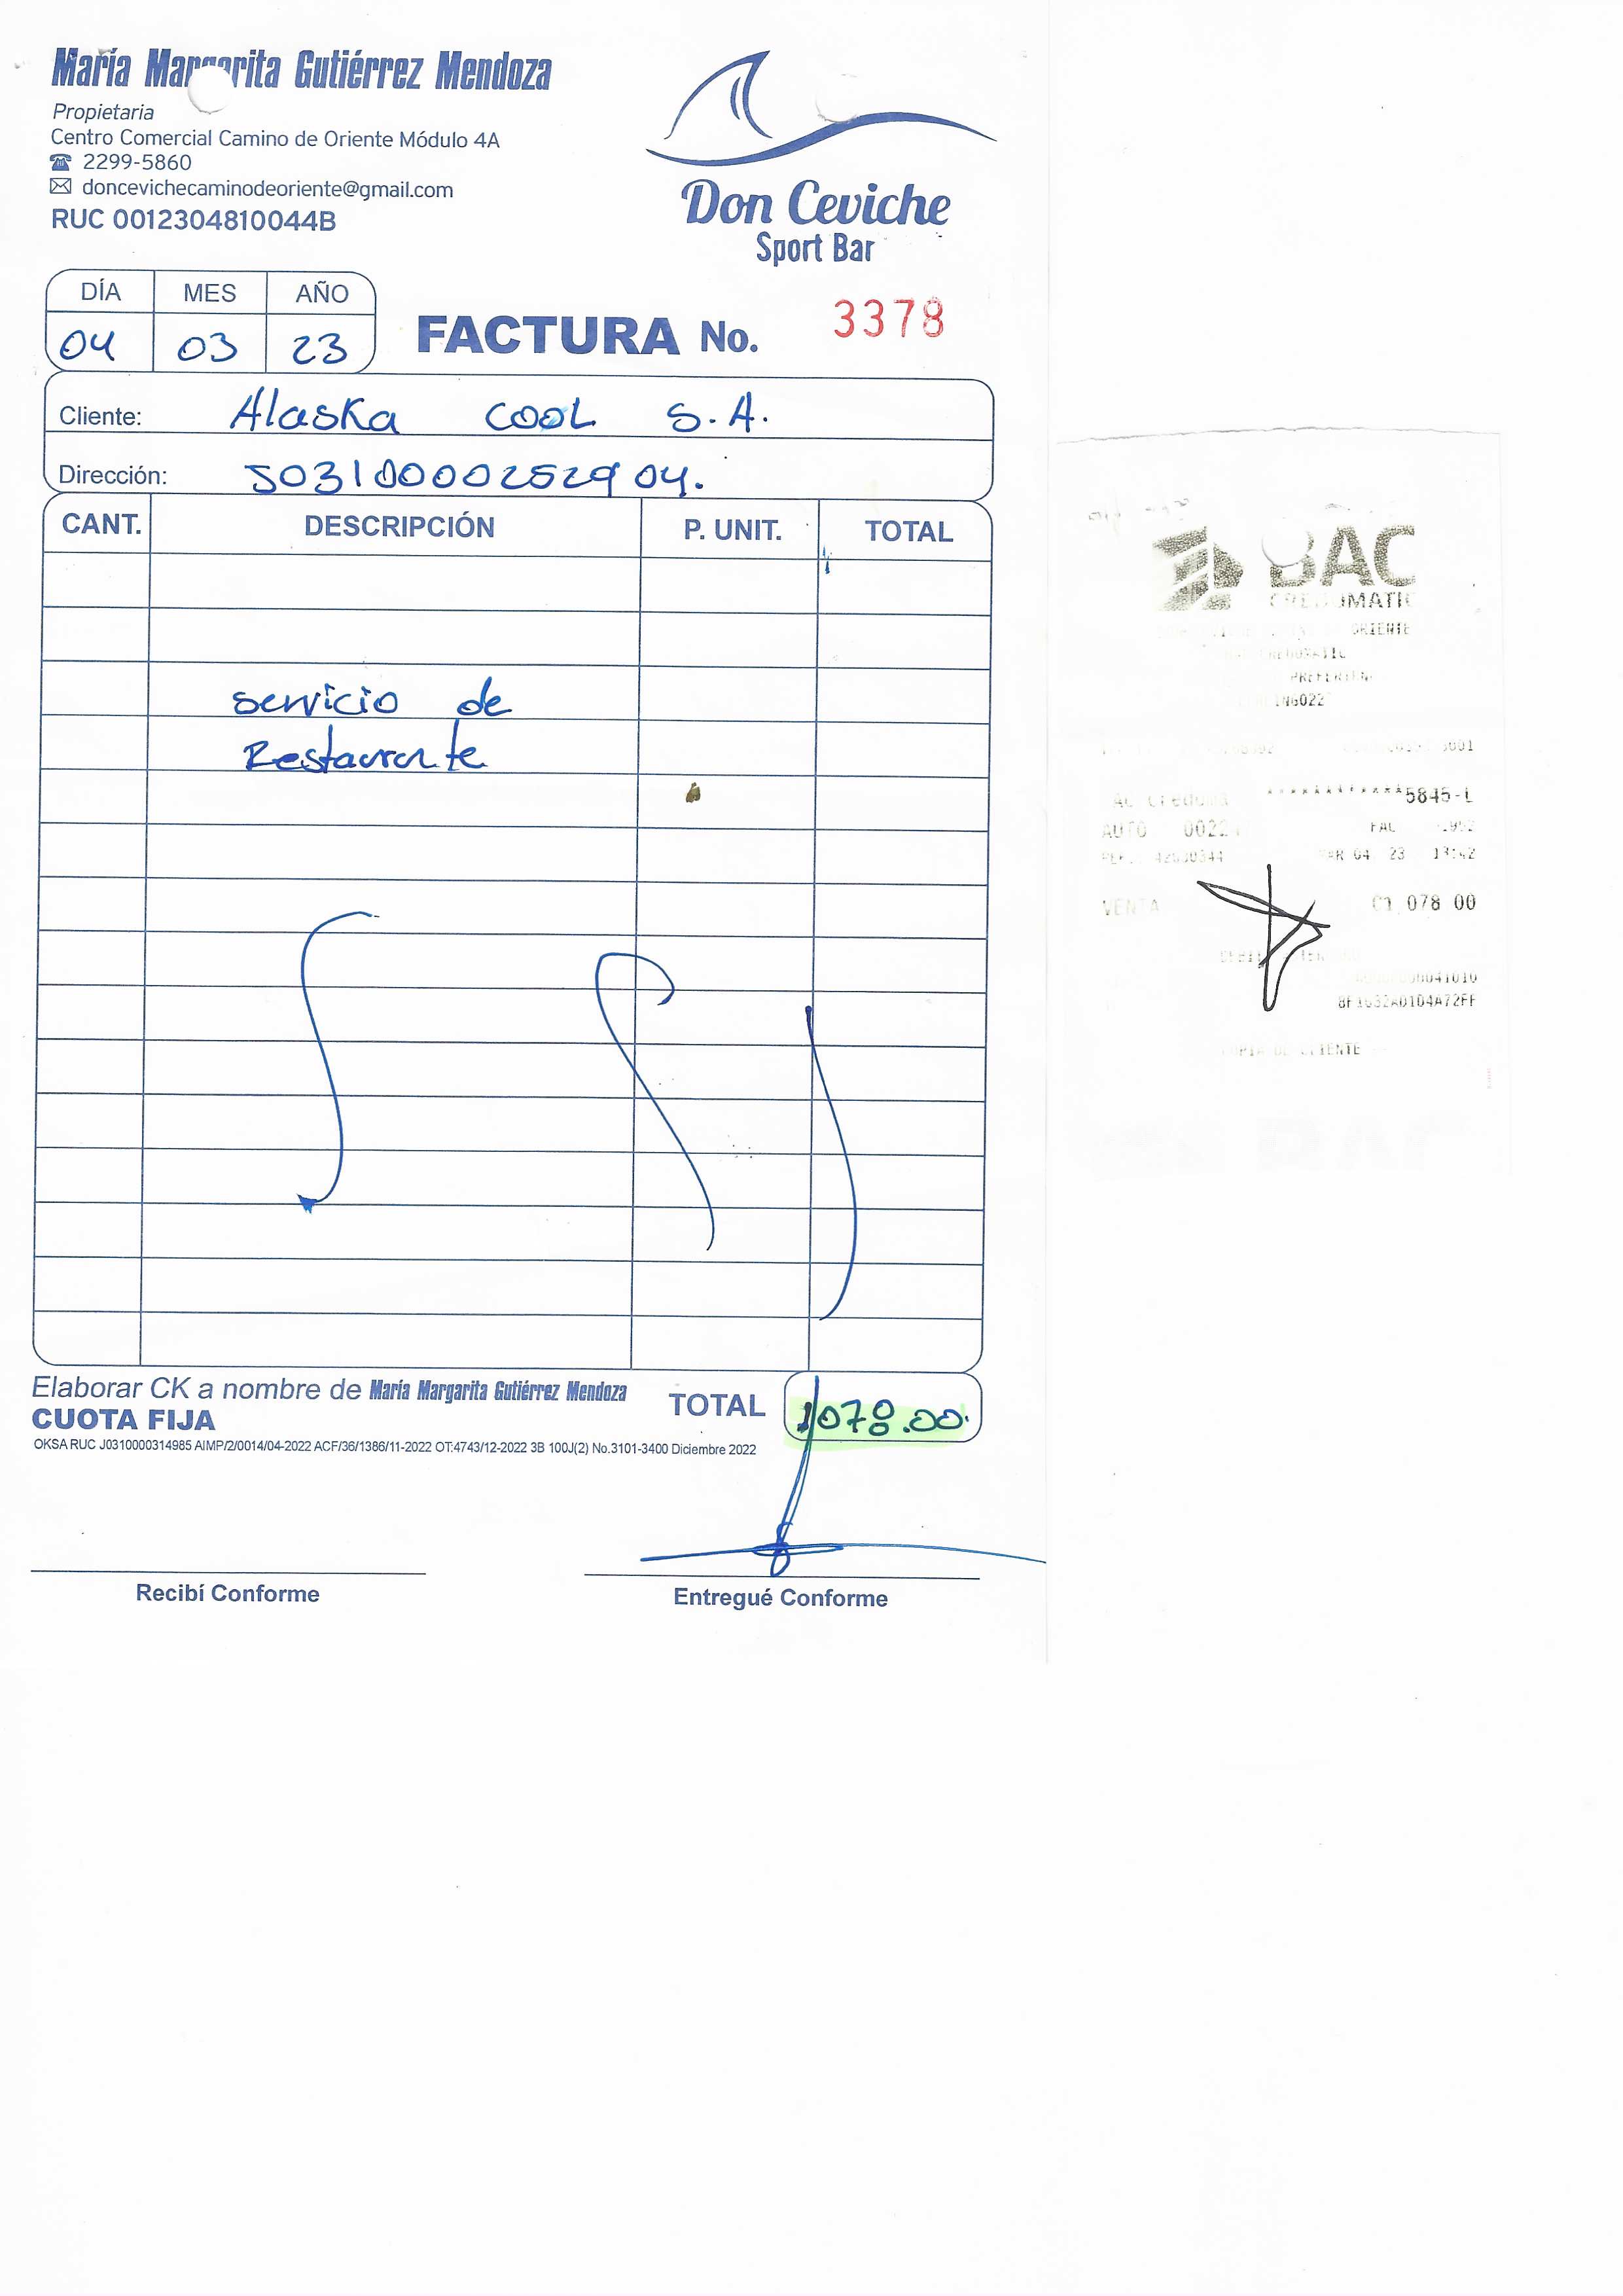 María Margarita Gutiérrez Mendoza
Propietaria
Centro Comercial Camino de Oriente Módulo 4A
2299-5860
doncevichecaminodeoriente@gmail.com
RUC 0012304810044B
Don Ceviche
Sport Bar
DÍA MES AÑO
04 03 23
FACTURA No. 3378
Cliente: Alaska COOL S.A.
Dirección: J0310000252904.
CANT. DESCRIPCIÓN P. UNIT. TOTAL
servicio de
Restaurante
Elaborar CK a nombre de María Margarita Gutiérrez Mendoza
CUOTA FIJA
TOTAL 1078.00
OKSA RUC J0310000314985 AIMP/2/0014/04-2022 ACF/36/1386/11-2022 OT:4743/12-2022 3B 100J(2) No.3101-3400 Diciembre 2022
Recibí Conforme
Entregué Conforme
BAC
CREDOMATIC
ORIENTE
************5845-L
AUTO
MAR 04 23
VENTA C1,078 00
COPIA DE CLIENTE